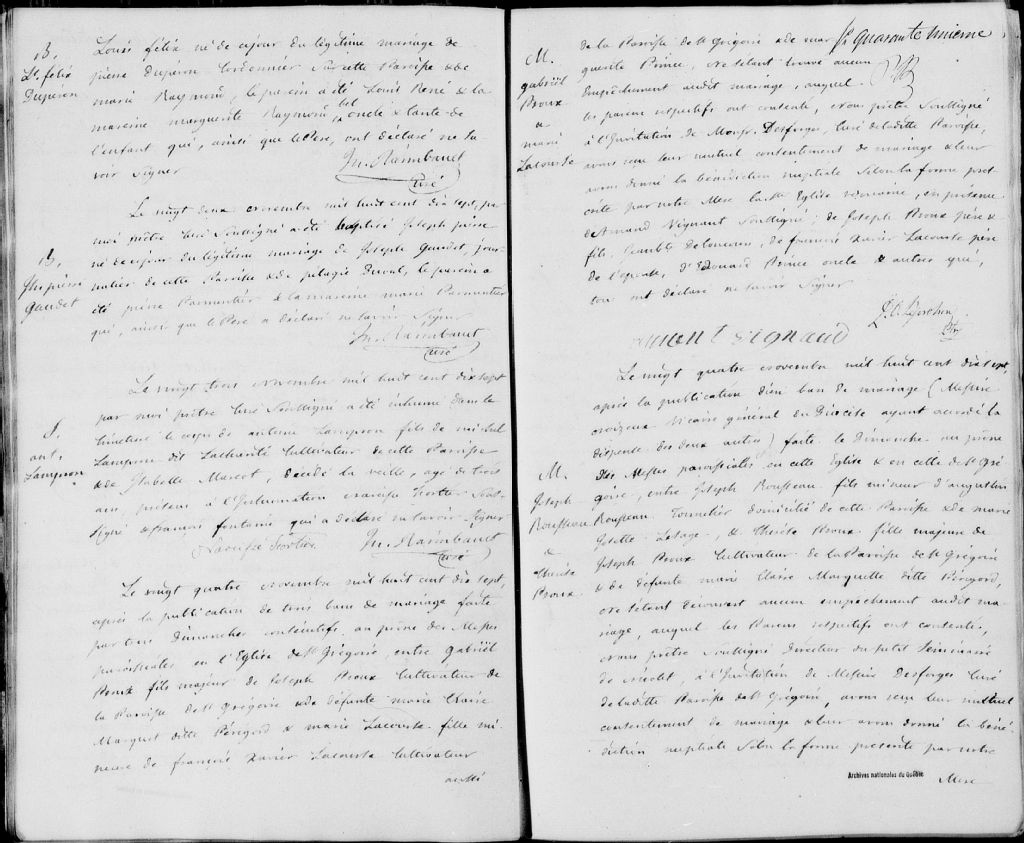 B.
Ls. felix
Duperon
Louis félix né de ce jour du légitime mariage de
pierre Duperon Cordonnier de cette Paroisse & de
marie Raymond, le parein a été Louis René & la
mareine marguerite Raymond bel oncle & tante de
l'enfant qui, ainsi que le Pere, ont déclaré ne sa-
voir signer
Jn. Raimbault
Curé
B.
Jph pierre
gaudet
Le vingt deux novembre mil huit cent dix sept, par
moi prêtre Curé soussigné a été baptisé Joseph pierre
né de ce jour du légitime mariage de Joseph Gaudet, jour-
nalier de cette Paroisse & de pelagie Duval, le parein a
été pierre Parmentier & la mareine marie Parmentier
qui, ainsi que le Pere a déclaré ne savoir signer
Jn. Raimbault
Curé
S.
ant.
Lampron
Le vingt trois novembre mil huit cent dix sept
par moi prêtre Curé soussigné a été inhumé dans le
Cimetiere le corps de antoine Lampron fils de michel
Lampron dit Lacharité Cultivateur de cette Paroisse
& de Isabelle Marcot, décédé la veille, agé de trois
ans, présens à l'Inhumation Narcisse Fortier sous-
signé & francois fontaine qui a déclaré ne savoir signer
Narcisse Fortier Jn. Raimbault
Curé
Le vingt quatre novembre mil huit cent dix sept,
après la publication de trois bans de mariage faite
par trois Dimanches consécutifs au prône des Messes
paroissiales en l'Eglise de St Grégoire, entre Gabriël
Proux fils majeur de Joseph Proux Cultivateur de
la Paroisse de St Grégoire & de défunte marie Claire
Marquet ditte Périgord & marie Lacourse fille mi-
neure de francois Xavier Lacourse Cultivateur
aussi
fl quarante unieme
M.
gabriël
Proux
&
marie
Lacourse
de la Paroisse de St Grégoire & de mar-
guerite Prince, ne s'étant trouvé aucun
Empêchement audit mariage, auquel
les parens respectifs ont consenti, nous prêtre soussigné
à l'Invitation de Monsr. Desforges, Curé de laditte Paroisse,
avons reçu leur mutuel consentement de mariage & leur
avons donné la bénédiction nuptiale selon la forme pres-
crite par notre Mere la Ste Eglise romaine, en présence
de Amand Vignant soussigné; de Joseph Proux père &
fils, de francois Xavier Lacourse père
de l'epouse, d'Edouard Prince oncle & autres qui,
tous ont déclaré ne savoir signer
Ptre
M.
Joseph
Rousseau
&
Therese
Proux
Le vingt quatre novembre mil huit cent dix sept
après la publication d'un ban de mariage (Messire
Vicaire général du Diocèse ayant accordé la
dispense des deux autres) faite le Dimanche au prône
des Messes paroissiales en cette Eglise & en celle de St Gré-
goire, entre Joseph Rousseau fils mineur d'augustin
Rousseau Tonnelier domicilié de cette Paroisse & de marie
Josette Lesage, & Therese Proux fille majeure de
Joseph Proux Cultivateur de la Paroisse de St Grégoire
& de défunte marie Claire Marquette ditte Périgord,
ne s'étant découvert aucun empêchement audit ma-
riage, auquel les Parens respectifs ont consenti,
nous prêtre soussigné Directeur du petit Séminaire
de Nicolet, à l'Invitation de Messire Desforges Curé
de laditte Paroisse de St Grégoire, avons reçu leur mutuel
consentement de mariage & leur avons donné la béné-
diction nuptiale selon la forme prescrite par notre
Mere
Archives nationales du Québec